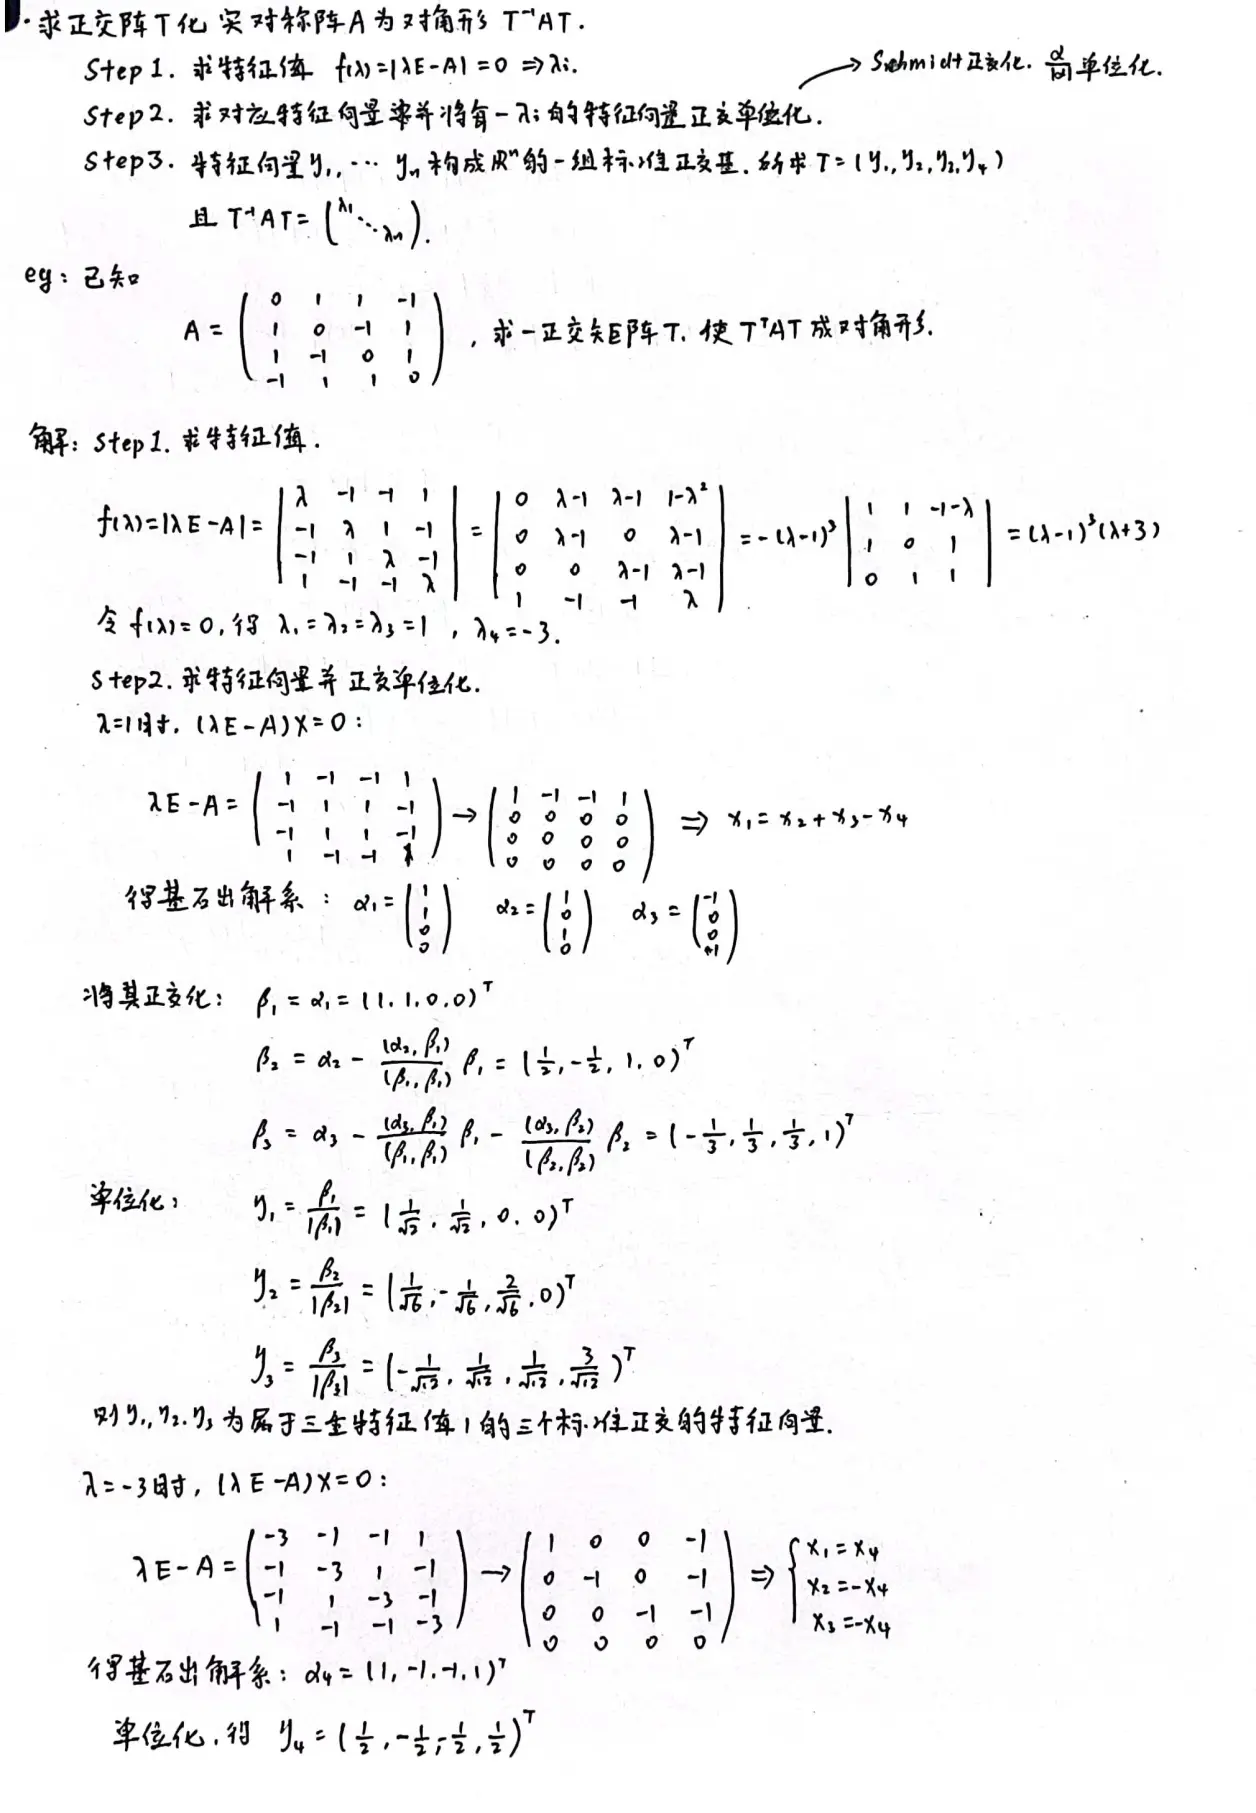 ·求正交阵T化实对称阵A为对角形 T⁻¹AT.
Step 1. 求特征值 f(λ)=|λE-A|=0 ⇒λi.
→ Schmidt正交化. α/|α| 单位化.
Step2. 求对应特征向量并将每一λi的特征向量正交单位化.
Step3. 特征向量y₁, … yₙ构成Rⁿ的一组标准正交基. 所求 T=(y₁,y₂,y₃,y₄)
且 T⁻¹AT= (λ₁ ⋱ λₙ).
eg: 已知
A = ( 0 1 1 -1
1 0 -1 1
1 -1 0 1
-1 1 1 0 ) , 求一正交矩阵T. 使 TᵀAT 成对角形.
解: Step1. 求特征值.
f(λ)=|λE-A|= | λ -1 -1 1 | = | 0 λ-1 λ-1 1-λ² | = -(λ-1)³ | 1 1 -1-λ | = (λ-1)³(λ+3)
| -1 λ 1 -1 | | 0 λ-1 0 λ-1 | | 1 0 1 |
| -1 1 λ -1 | | 0 0 λ-1 λ-1 | | 0 1 1 |
| 1 -1 -1 λ | | 1 -1 -1 λ |
令 f(λ)=0, 得 λ₁=λ₂=λ₃=1 , λ₄=-3.
Step2. 求特征向量并正交单位化.
λ=1时, (λE-A)X=0 :
λE-A= ( 1 -1 -1 1 → ( 1 -1 -1 1 ⇒ x₁=x₂+x₃-x₄
-1 1 1 -1 0 0 0 0
-1 1 1 -1 0 0 0 0
1 -1 -1 1 ) 0 0 0 0 )
得基础解系 : α₁= (1 1 0 0) α₂= (1 0 1 0) α₃ = (-1 0 0 1)
将其正交化: β₁ = α₁ = (1,1,0,0)ᵀ
β₂ = α₂ - (α₂,β₁)/(β₁,β₁) β₁ = (1/2,-1/2, 1, 0)ᵀ
β₃ = α₃ - (α₃,β₁)/(β₁,β₁) β₁ - (α₃,β₂)/(β₂,β₂) β₂ = (-1/3, 1/3, 1/3, 1)ᵀ
单位化: y₁ = β₁/|β₁| = (1/√2, 1/√2, 0, 0)ᵀ
y₂ = β₂/|β₂| = (1/√6,-1/√6, 2/√6, 0)ᵀ
y₃ = β₃/|β₃| = (-1/√12, 1/√12, 1/√12, 3/√12)ᵀ
则 y₁,y₂,y₃ 为属于三重特征值1的三个标准正交的特征向量.
λ=-3时, (λE-A)X=0 :
λE-A= ( -3 -1 -1 1 → ( 1 0 0 -1 ⇒ { x₁=x₄
-1 -3 1 -1 0 -1 0 -1 x₂=-x₄
-1 1 -3 -1 0 0 -1 -1 x₃=-x₄
1 -1 -1 -3 ) 0 0 0 0 )
得基础解系: α₄ = (1,-1,-1,1)ᵀ
单位化, 得 y₄ = (1/2,-1/2,-1/2,1/2)ᵀ